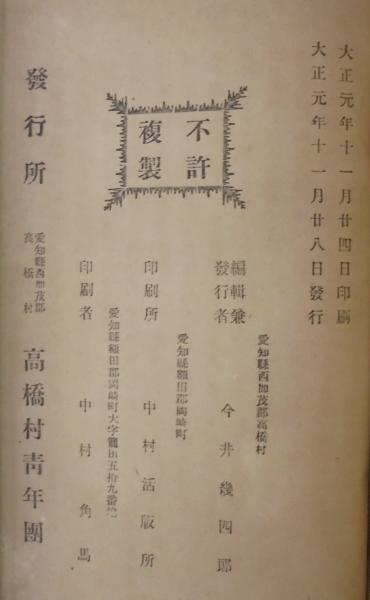 大正元年十一月廿四日印刷
大正元年十一月廿八日發行
不許
複製
愛知縣西加茂郡高橋村
編輯兼
發行者
今井幾四郎
愛知縣額田郡岡崎町
印刷所 中村活版所
愛知縣額田郡岡崎町大字龍田五拾九番地
印刷者 中村角馬
愛知縣西加茂郡
高橋村
發行所 高橋村靑年團